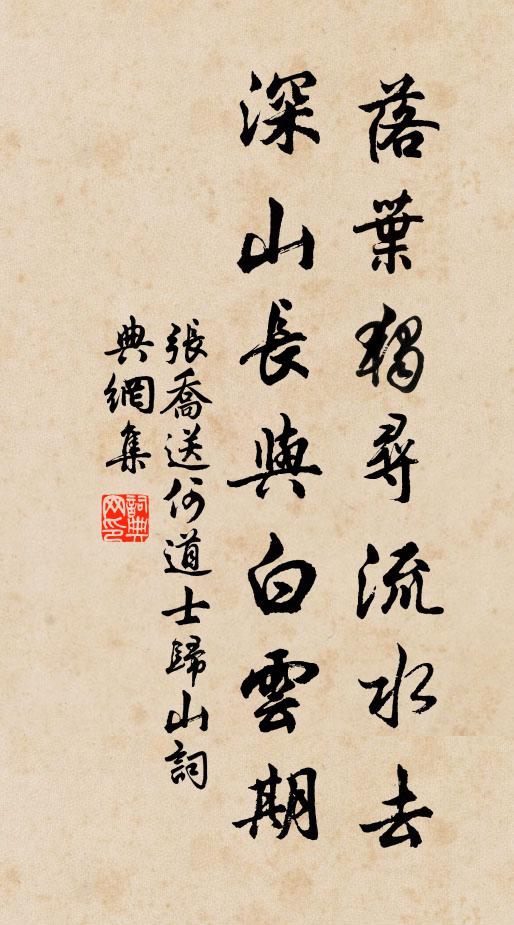 落葉獨尋流水去
深山長與白雲期
張喬送何道士歸山詞
典網集
詞典網印